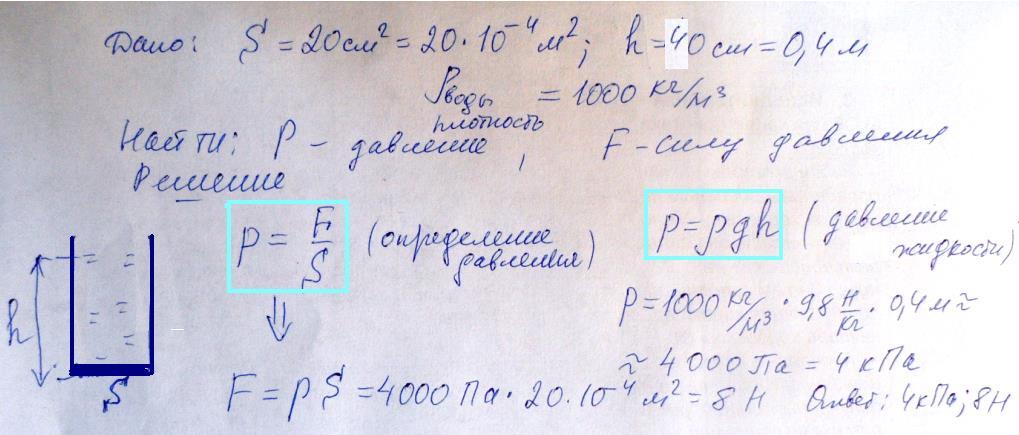 Дано: S = 20 см² = 20·10⁻⁴ м²; h = 40 см = 0,4 м
ρводы = 1000 кг/м³
плотность
Найти: P – давление, F – силу давления
Решение
p = F/S (определение давления)
p = ρgh (давление жидкости)
⇓
p = 1000 кг/м³ · 9,8 Н/кг · 0,4 м ≈
≈ 4000 Па = 4 кПа
h
S
F = pS = 4000 Па · 20·10⁻⁴ м² = 8 Н Ответ: 4 кПа; 8 Н